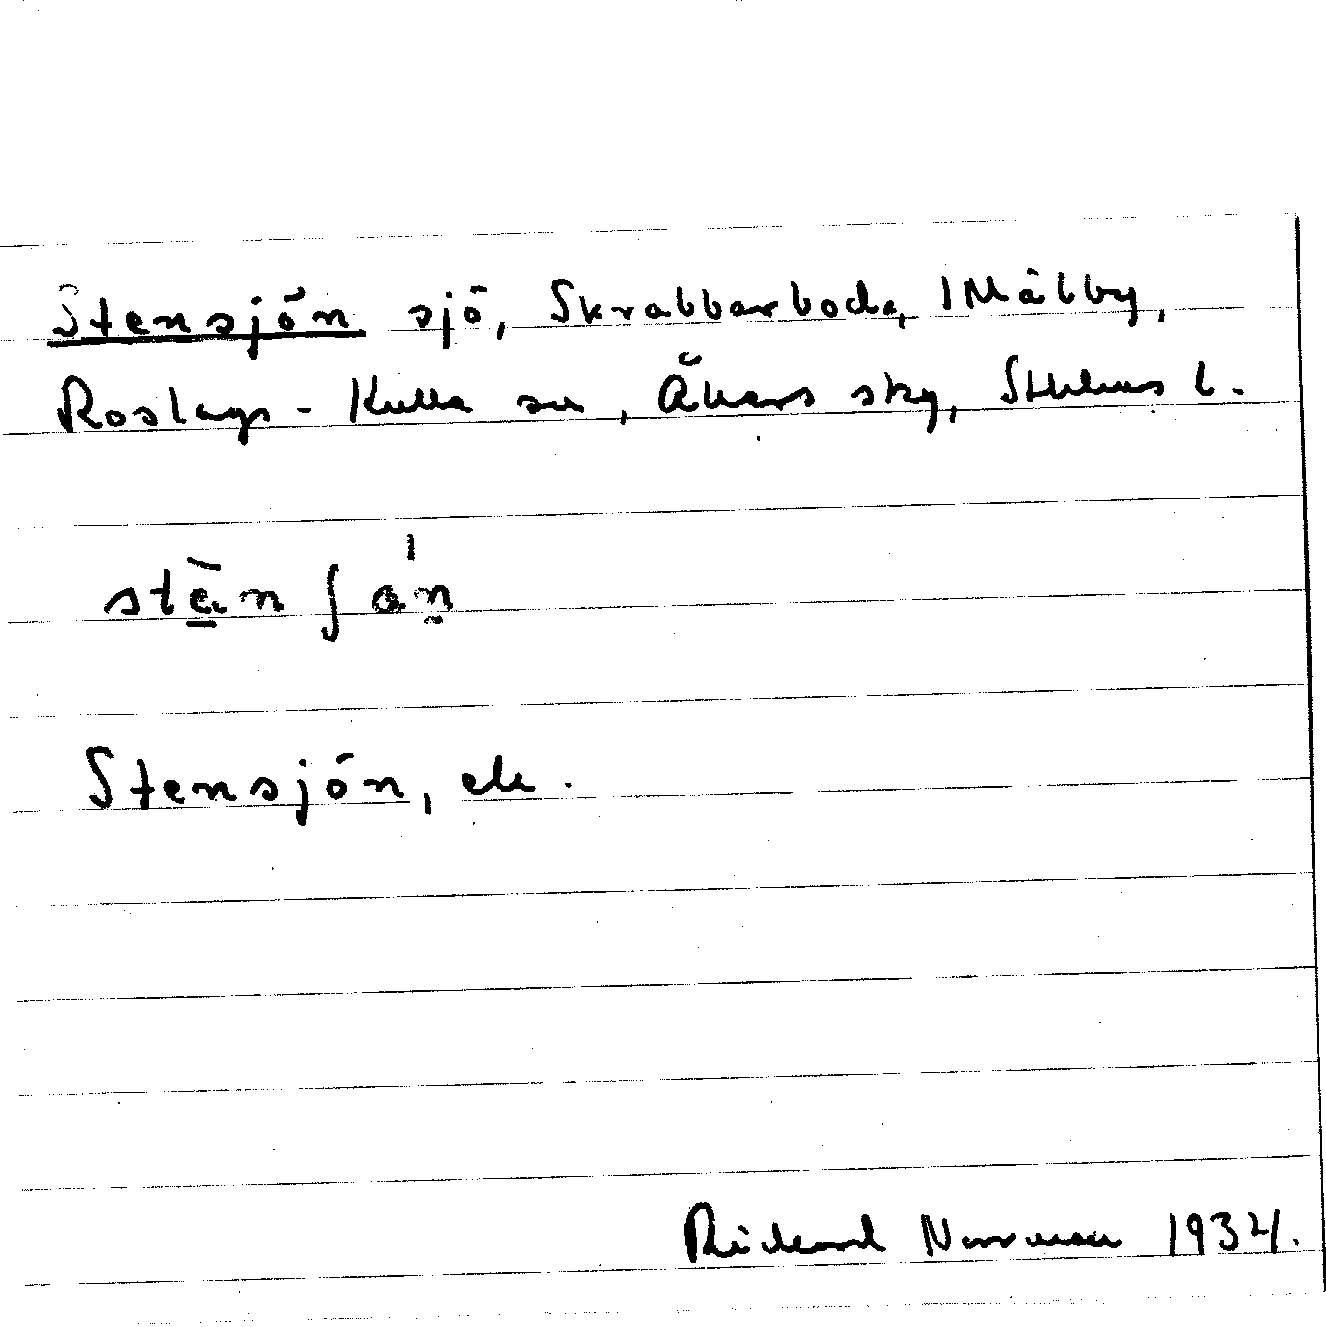 Stensjön sjö, Skrabbarboda, Målby,
Roslags-Kulla sn, Åkers sky, Sthlms l.
stēn ʃ ən
Stensjön, ek.
Rickard Norrman 1934.